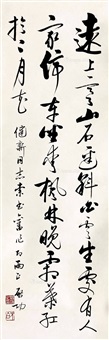 遠上寒山石逕斜白雲生處有人
家停車坐愛楓林晚霜葉紅
於二月花 新同志索書 啟功